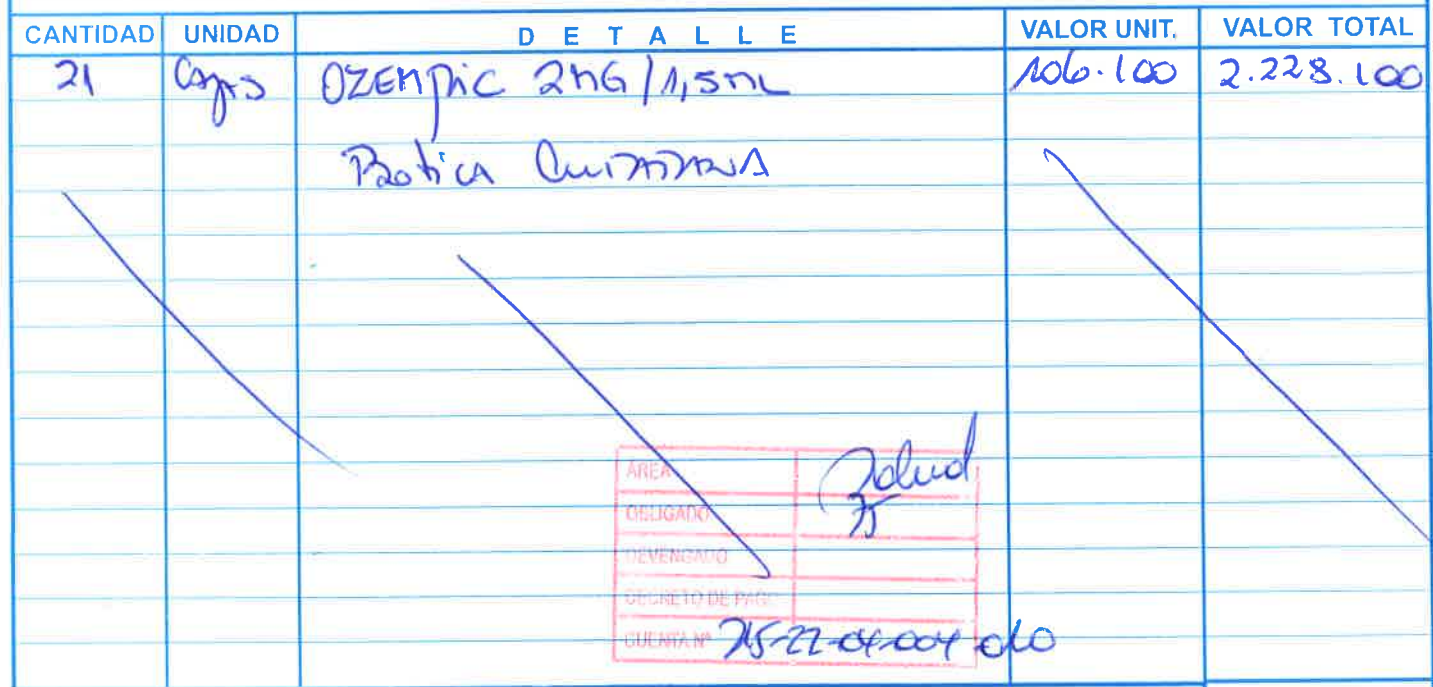 CANTIDAD UNIDAD DETALLE VALOR UNIT. VALOR TOTAL
21 Cajas OZEMPIC 2MG/1,5mL 106.100 2.228.100
Botica Ciudadana
AREA Salud
OBLIGADO 75
DEVENGADO
DECRETO DE PAGO
CUENTA Nº 215-22-04-004-010